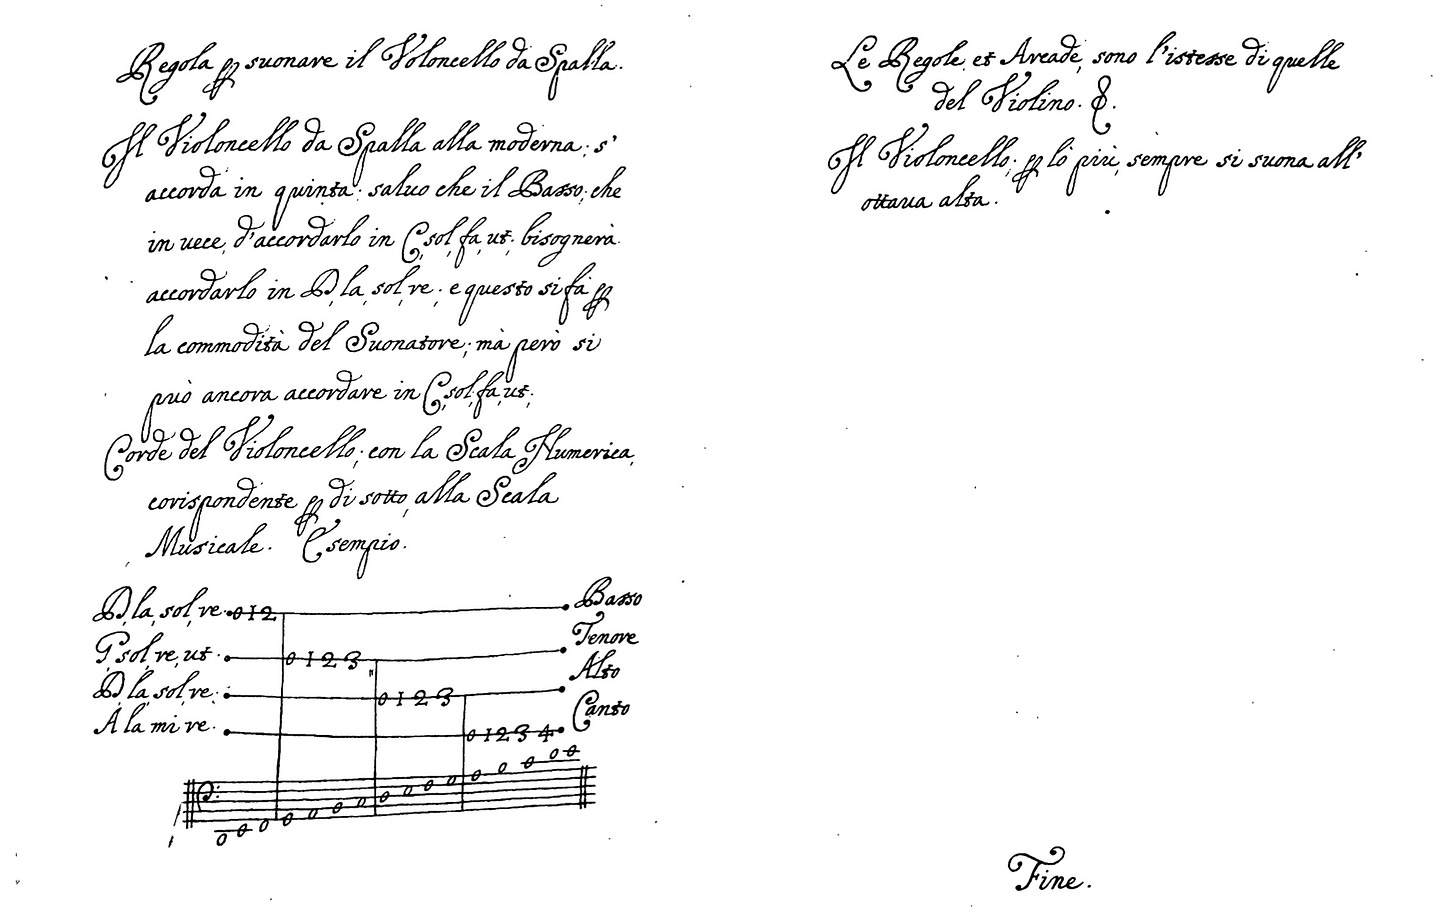 Regola ꝑ suonare il Voloncello da Spalla.
Il Violoncello da Spalla alla moderna; s'
accorda in quinta; saluo che il Basso; che
in uece, d'accordarlo in C, sol, fa, ut; bisognerà
accordarlo in D, la, sol, re; e questo si fà ꝑ
la commodità del Suonatore; mà però si
può ancora accordare in C, sol, fa, ut;
Corde del Violoncello; con la Scala Numerica,
corispondente ꝑ di sotto, alla Scala
Musicale. Esempio.
D, la, sol, re. 0 1 2 Basso
G, sol, re, ut. 0 1 2 3 Tenore
D, la, sol, re. 0 1 2 3 Alto
A la mi re. 0 1 2 3 4 Canto
Le Regole, et Arcade, sono l'istesse di quelle
del Violino. &.
Il Violoncello; ꝑ lò più, sempre si suona all'
ottaua alta.
Fine.